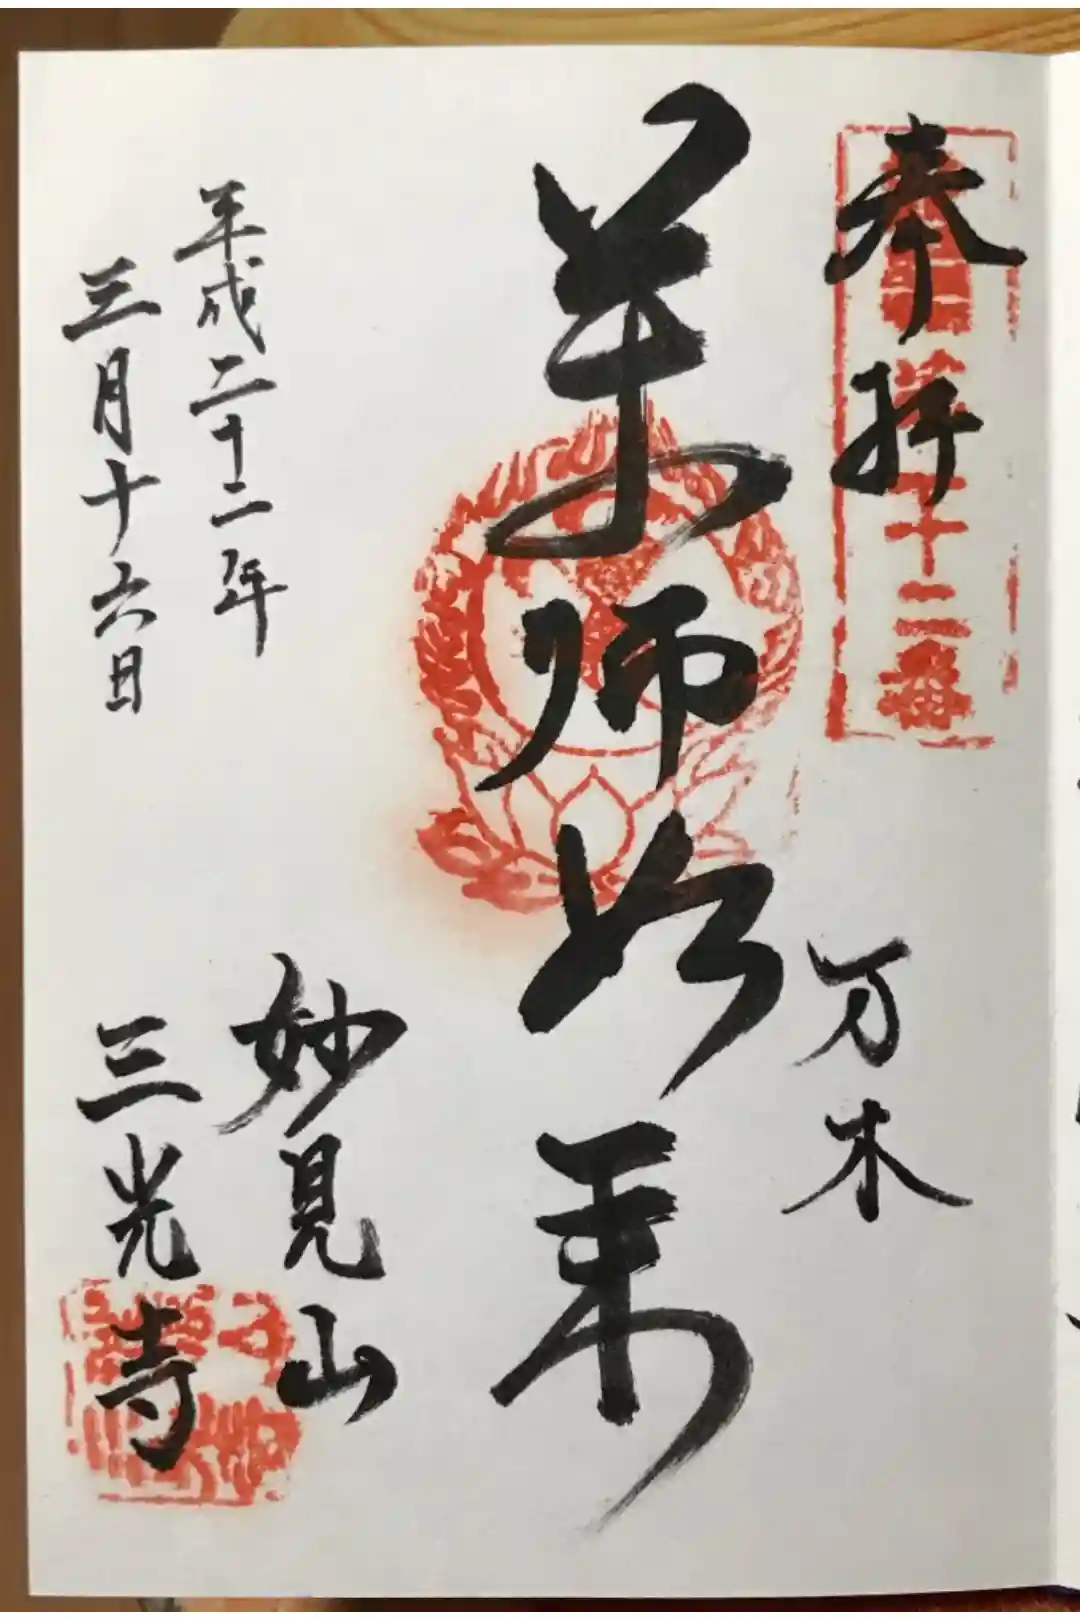 奉拝
十二番
万木
薬師如来
平成二十二年
三月十六日
妙見山
三光寺